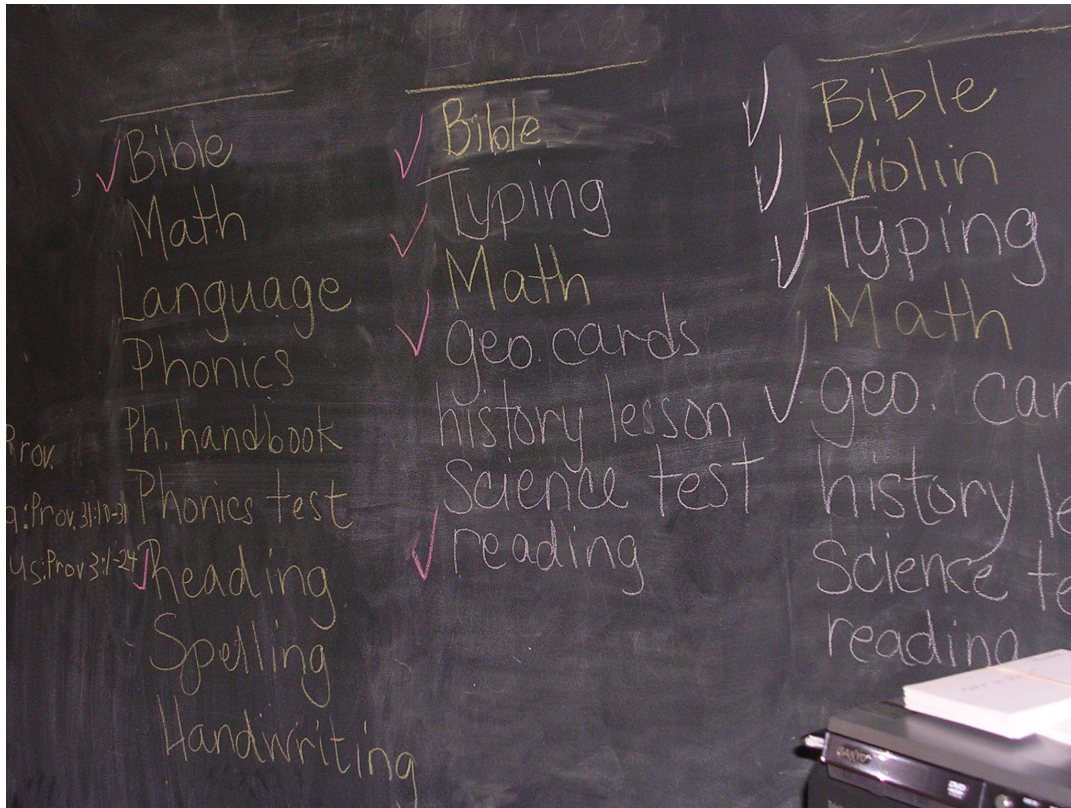 Bible
Math
Language
Phonics
Ph. handbook
Phonics test
Reading
Spelling
Handwriting
Prov.
:Prov. 31:10-31
us:Prov 3:1-24
Bible
Typing
Math
geo. cards
history lesson
Science test
reading
Bible
Violin
Typing
Math
geo. car
history le
Science te
reading
SANYO
DVD